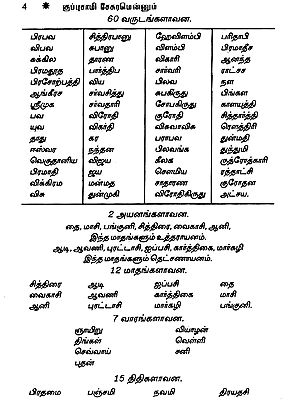 4 ✷ குப்புசாமி சேகரமென்னும்
60 வருடங்களாவன.
பிரபவ சித்திரபானு ஹேவிளம்பி பரிதாபி
விபவ சுபானு விளம்பி பிரமாதீச
சுக்கில தாரண விகாரி ஆனந்த
பிரமதூத பார்த்திப சார்வரி ராட்சச
பிரசோற்பத்தி விய பிலவ நள
ஆங்கீரச சர்வசித்து சுபகிருது பிங்கள
ஸ்ரீமுக சர்வதாரி சோபகிருது காளயுத்தி
பவ விரோதி குரோதி சித்தார்த்தி
யுவ விகிர்தி விசுவாவசு ரௌத்திரி
தாது கர பராபவ துன்மதி
ஈஸ்வர நந்தன பிலவங்க துந்துமி
வெகுதானிய விஜய கீலக ருத்ரோத்காரி
பிரமாதி ஜய சௌமிய ரத்தாட்சி
விக்கிரம மன்மத சாதாரண குரோதன
விசு துன்முகி விரோதிகிருது அட்சய.
2 அயனங்களாவன.
தை, மாசி, பங்குனி, சித்திரை, வைகாசி, ஆனி,
இந்த மாதங்களும் உத்தராயனம்.
ஆடி, ஆவணி, புரட்டாசி, ஐப்பசி, கார்த்திகை, மார்கழி
இந்த மாதங்களும் தெட்சணாயனம்.
12 மாதங்களாவன.
சித்திரை ஆடி ஐப்பசி தை
வைகாசி ஆவணி கார்த்திகை மாசி
ஆனி புரட்டாசி மார்கழி பங்குனி.
7 வாரங்களாவன.
ஞாயிறு வியாழன்
திங்கள் வெள்ளி
செவ்வாய் சனி
புதன்
15 திதிகளாவன.
பிரதமை பஞ்சமி நவமி திரயதசி